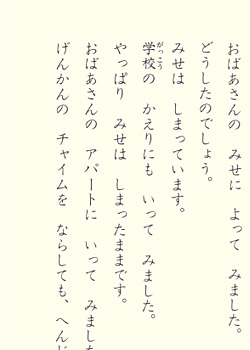 おばあさんの　みせに　よって　みました。
どうしたのでしょう。
みせは　しまっています。
学校の　かえりにも　いって　みました。
やっぱり　みせは　しまったままです。
おばあさんの　アパートに　いって　みました
げんかんの　チャイムを　ならしても、へんじ